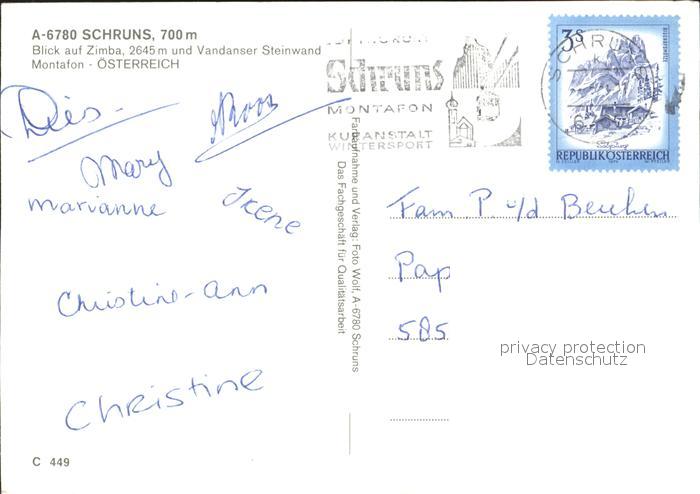 A-6780 SCHRUNS, 700 m
Blick auf Zimba, 2645 m und Vandanser Steinwand
Montafon - ÖSTERREICH
Schruns
MONTAFON
KURANSTALT
WINTERSPORT
SCHRUNS
3 S
REPUBLIK ÖSTERREICH
Mary
Marianne
Irene
Christine-Ann
Christine
Farbaufnahme und Verlag: Foto Wolf, A-6780 Schruns
Das Fachgeschäft für Qualitätsarbeit
Fam P. v/d
Pap
585
privacy protection
Datenschutz
C 449